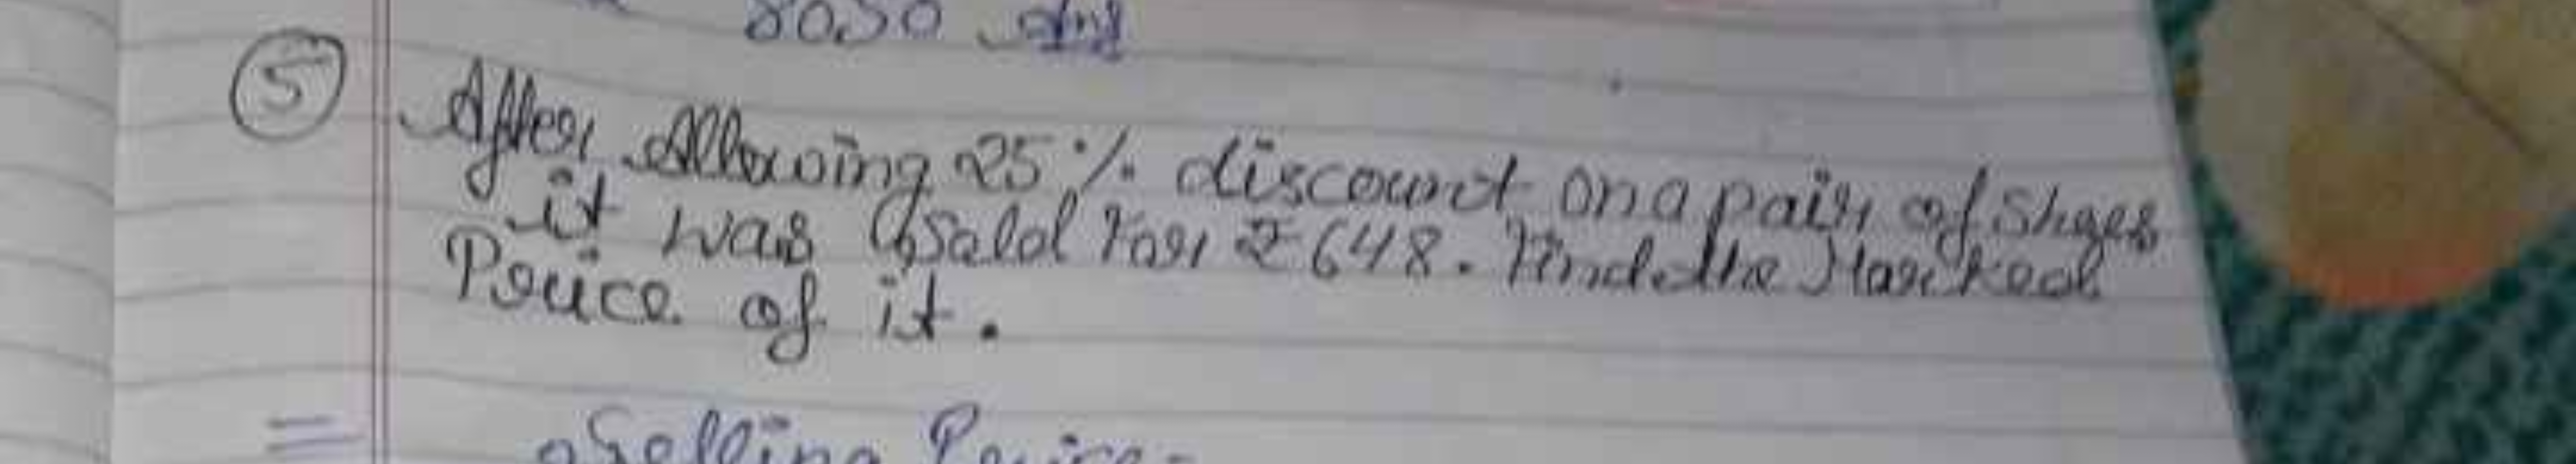 8050 Ans
5 After Allowing 25% discount on a pair of Shoes
it was Sold For ₹648. Find the Marked
Price of it.
= Selling Price =